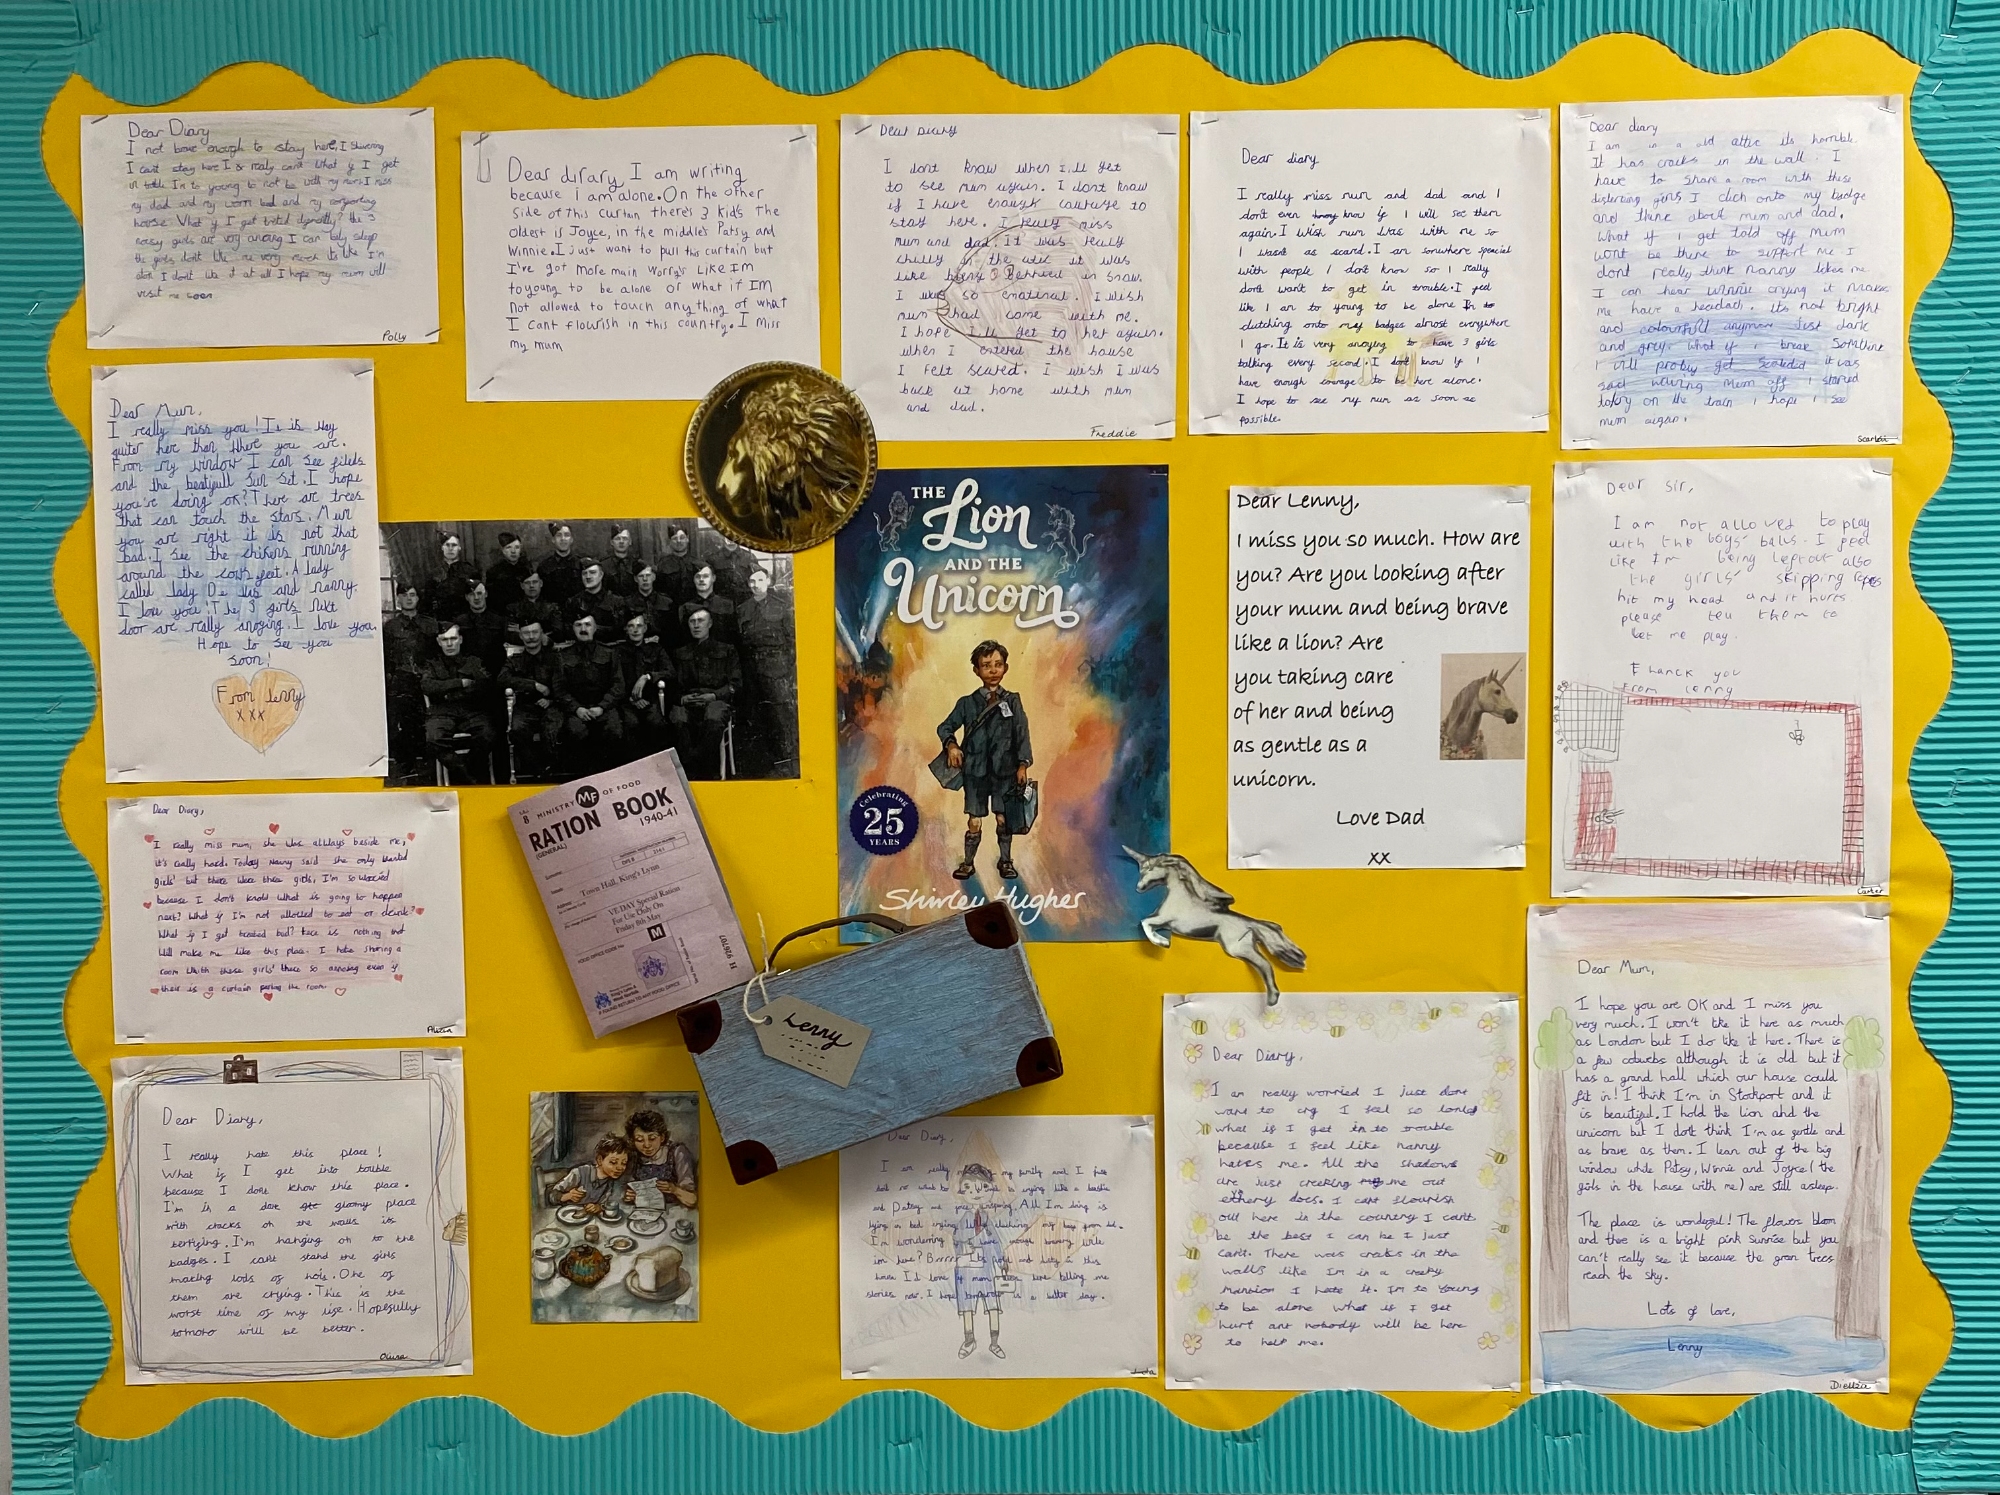 Dear Diary
I not bave enough to stay here, I shivering
I cant stay here I & realy cant. What if I get
in to young to not be with my mum I miss
my dad and my worm bed and my
house. What if I get treted diffrently? the 3
noisy girls are very anoying I can bearly sleep
the girls dont like me very much its like I'm
I dont like it at all I hope my mum will
visit me soon
Polly
Dear dirary, I am writing
because i am alone. On the other
side of this curtain there's 3 kids The
oldest is Joyce, in the middle's Patsy and
Winnie. I just want to pull this curtain but
I've got more main worrys like Im
to young to be alone or what if IM
Not allowed to touch anything of what
I Cant flourish in this country. I miss
my mum
Dear diary
I dont know when i,ll get
to see mum again. I dont know
if I have enough courage to
stay here. I really miss
mum and dad. It was really
chilly in the attic it was
like being behind in snow.
I was so I wish
mum had come with me.
I hope I'll get to her again.
when I entered the house
I felt scared. I wish I was
back at home with mum
and dad.
Freddie
Dear diary
I really miss mum and dad and I
don't even know if I will see them
again. I wish mum was with me so
I wasnt as scard. I am somwhere special
with people I dont know so I really
dont want to get in trouble. I feel
like I am to young to be alone Im to
clutching onto my badges almost everywhere
I go. It is very anoying to have 3 girls
talking every second. I dont know if I
have enough courage to be here alone.
I hope to see my mum as soon as
possible.
Dear diary
I am in a old attic its horrible.
It has cracks in the wall. I
have to share a room with these
disterbing girls I clich onto my badge
and think about mum and dad.
What if I get told off mum
wont be there to support me I
dont really think nanny likes me.
I can hear winnie crying it makes
me have a headach. its not bright
and colourfull anymore Just dark
and grey. what if i break somthing
I will probly get scolded it was
sad waving mum off I started
on the train I hope I see
mum agian.
Scarlett
Dear Mum,
I really miss you! It is way
quiter her than where you are.
From my window I can see fileds
and the beatifull sun set. I hope
you're doing ok? There are trees
that can touch the stars. Mum
you are right it is not that
bad. I see the chikens running
around the cows feet. A lady
called lady De Vas and nanny.
I love you! The 3 girls next
door are really anoying. I love you.
Hope to see you
soon!
From lenny
x x x
THE
Lion
AND THE
Unicorn
Celebrating
25
YEARS
Shirley Hughes
Dear Lenny,
I miss you so much. How are
you? Are you looking after
your mum and being brave
like a lion? Are
you taking care
of her and being
as gentle as a
unicorn.
Love Dad
xx
Dear Sir,
I am not allowed to play
with the boys' balls. I feel
like I'm being leftout also
the girls' skipping ropes
hit my head and it hurts
please tell them to
let me play.
Thanck you
From lenny
Carter
8 MINISTRY MF OF FOOD
RATION BOOK
(GENERAL)
1940-41
Town Hall, King's Lynn
VE DAY Special Ration
For Use Only On
Friday 8th May
M
H 926707
Lenny
Dear Diary,
I really miss mum, she was always beside me,
it's really hard. Today Nanny said she only wanted
girls' but there were three girls, I'm so worried
because I don't know what is going to happen
next? What if I'm not allowed to eat or drink?
What if I get treated bad? there is nothing that
will make me like this place. I hate sharing a
room with these girls' there so annoing even if
their is a curtain parting the room.
Alicia
Dear Diary,
I really hate this place!
What if I get into touble
because I dont know this place.
I'm in a dark gloomy place
with cracks on the walls its
terifying. I'm hanging on to the
badges. I cant stand the girls
making lods of nois. One of
them are crying. This is the
worst time of my life. Hopefully
tomoro will be better.
Olivia
Dear Diary,
I am really my family and I
not so what to do. Winnie is crying like a
and Patsy All I'm doing is
lying in bed crying clutching my
I'm wondering if I have enough bravery while
im here? Brrrr its cold and in this
house I'd love if mum was here telling me
stories now. I hope tomorrow is a better day.
Dear Diary,
I am really worried I just dont
want to cry I feel so lonly
what is I get in to trouble
because I feel like nanny
hates me. All the shadows
are just creeking me out
does. I cant flourish
out here in the country I cant
be the best I can be I just
can't. There was cracks in the
walls like I'm in a creeky
mansion I hate it. Im to young
to be alone what is I get
hurt ant nobody will be here
to help me.
Dear Mum,
I hope you are OK and I miss you
very much. I won't like it here as much
as London but I do like it here. There is
a few cobwebs although it is old but it
has a grand hall which our house could
fit in! I think I'm in Stockport and it
is beautiful. I hold the lion and the
unicorn but I don't think I'm as gentle and
as brave as them. I lean out of the big
window while Patsy, Winnie and Joyce (the
girls in the house with me) are still asleep.
The place is wonderful! The flowers bloom
and there is a bright pink sunrise but you
can't really see it because the green trees
reach the sky.
Lots of love,
Lenny
Diellza